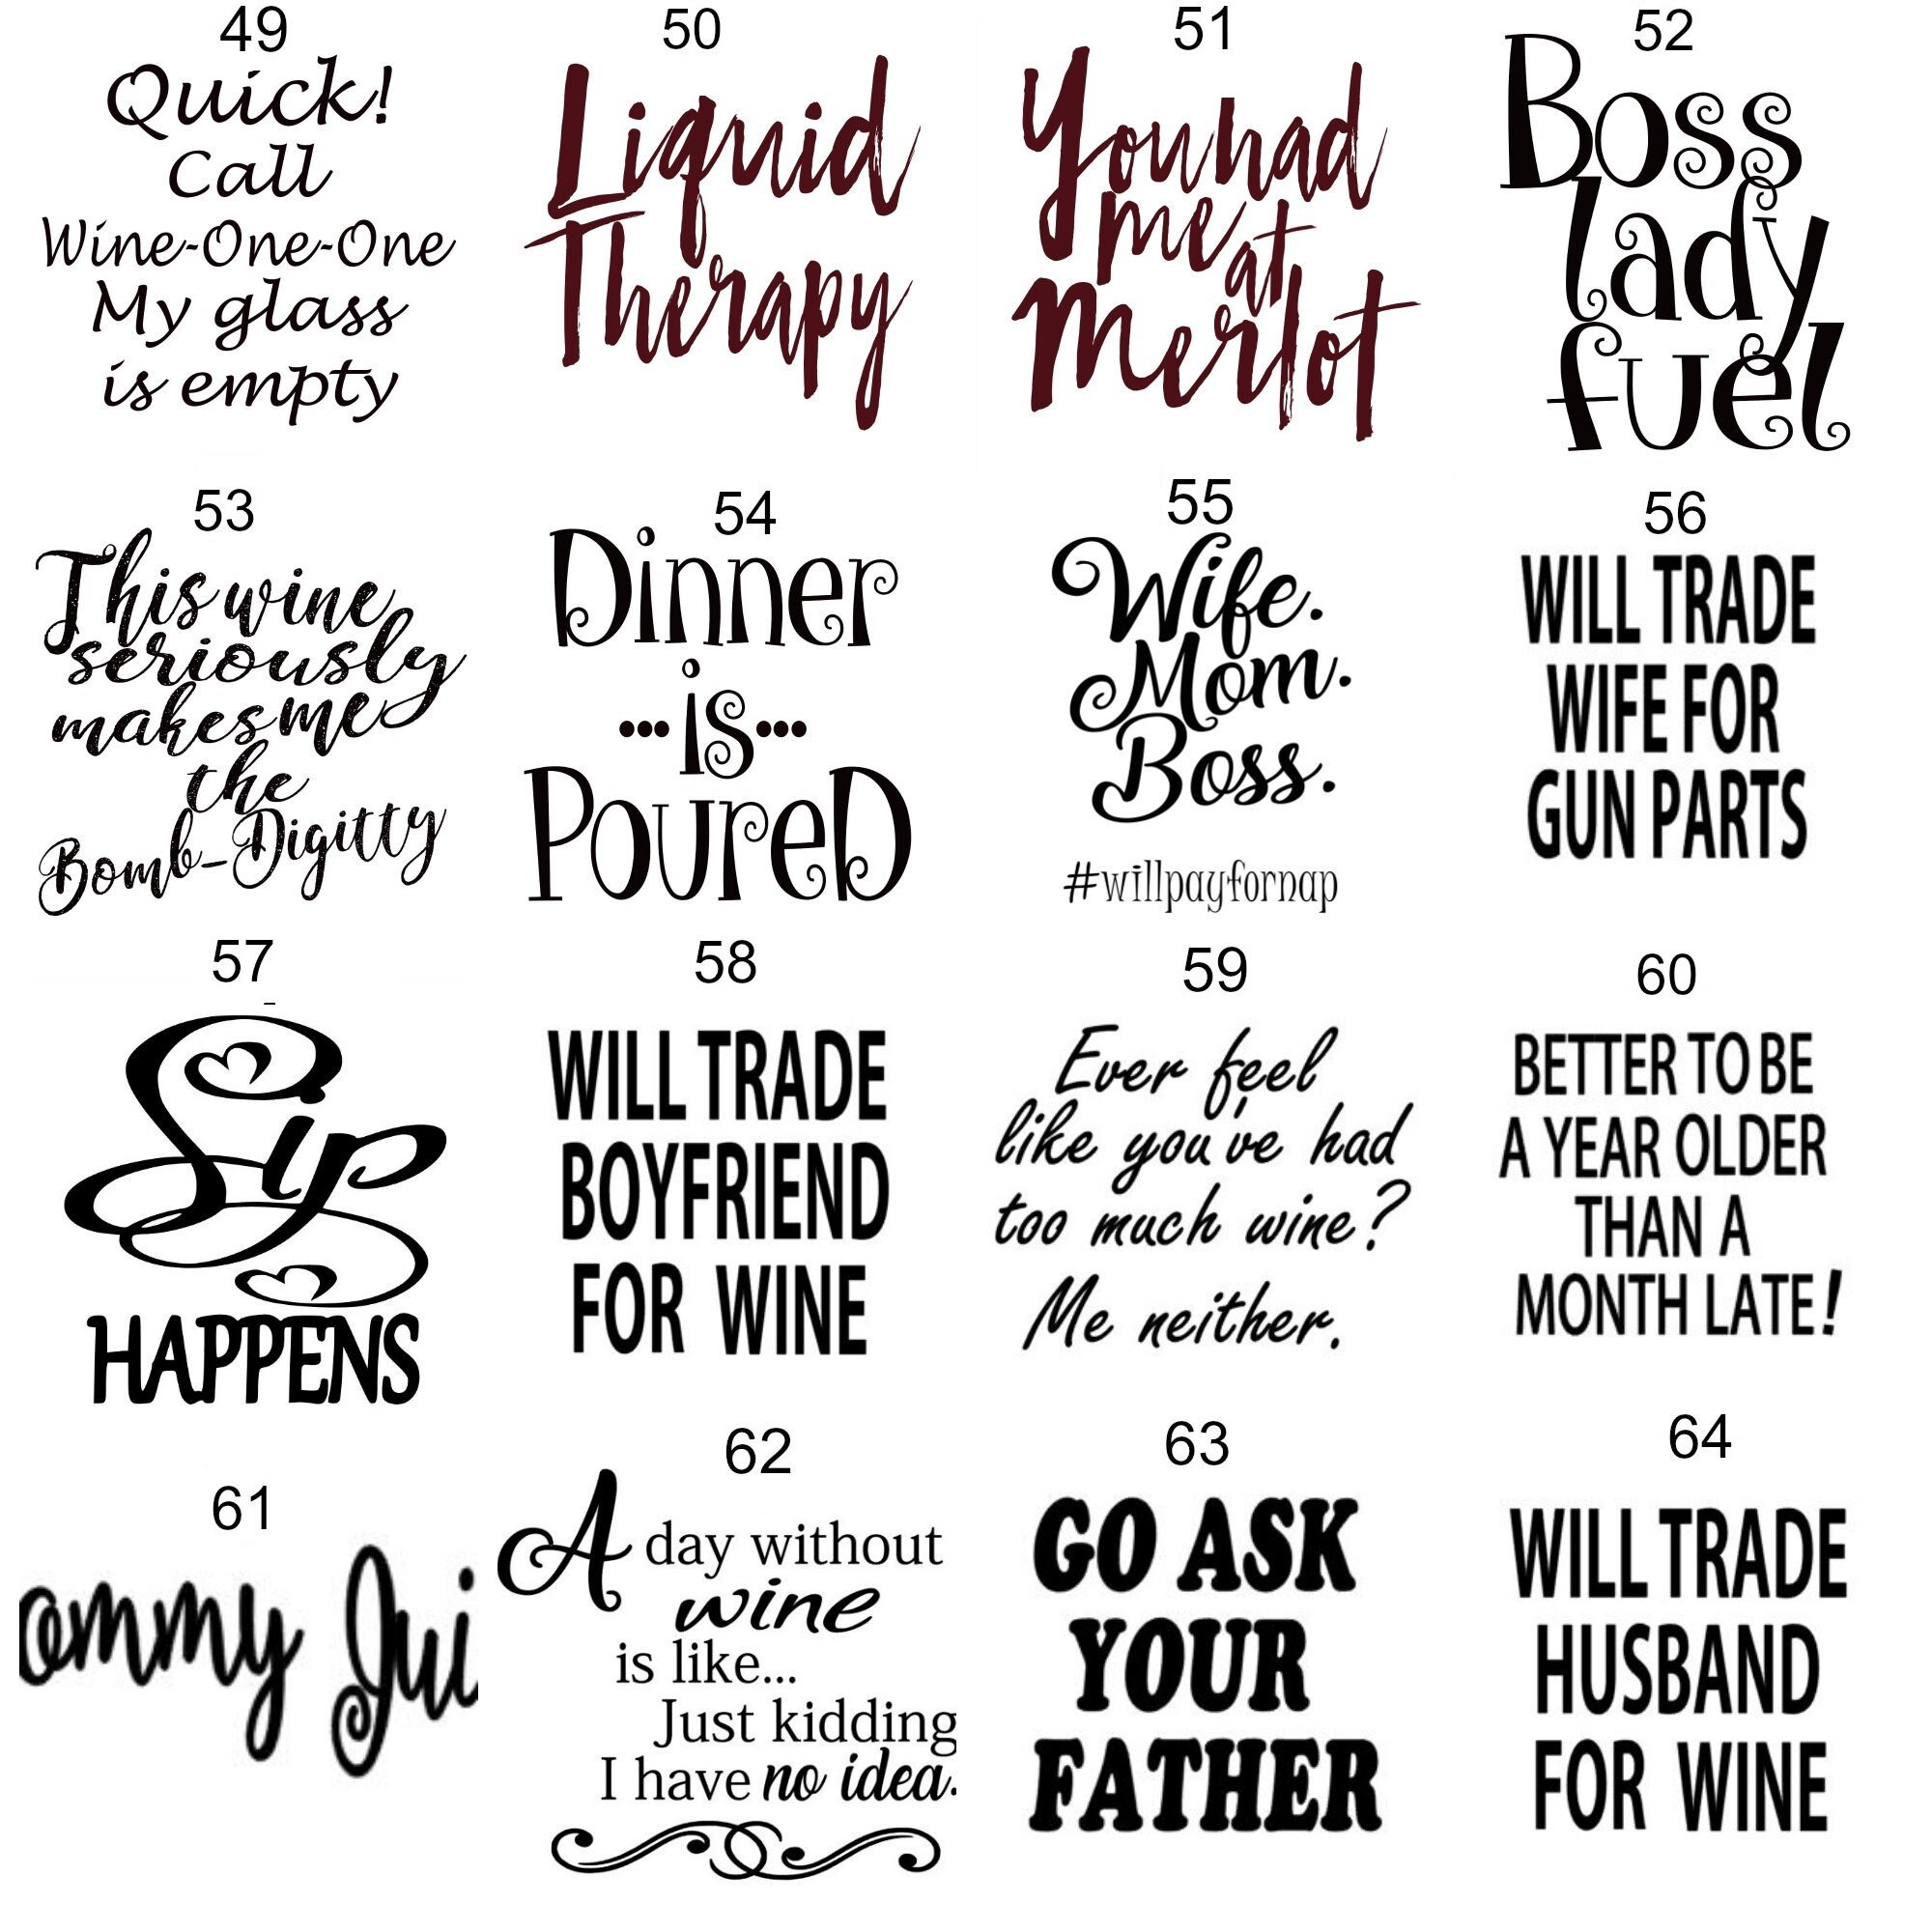 49
Quick!
Call
Wine-One-One
My glass
is empty
50
Liquid
Therapy
51
You had
me at
Merlot
52
Boss
lady
fuel
53
This wine
seriously
makes me
the
Bomb-Digitty
54
Dinner
...is...
Poured
55
Wife.
Mom.
Boss.
#willpayfornap
56
WILL TRADE
WIFE FOR
GUN PARTS
57
Sip
HAPPENS
58
WILL TRADE
BOYFRIEND
FOR WINE
59
Ever feel
like you've had
too much wine?
Me neither.
60
BETTER TO BE
A YEAR OLDER
THAN A
MONTH LATE!
61
ommy Jui
62
A day without
wine
is like...
Just kidding
I have no idea.
63
GO ASK
YOUR
FATHER
64
WILL TRADE
HUSBAND
FOR WINE